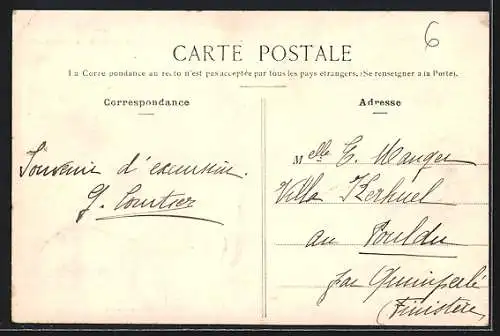 6
CARTE POSTALE
La Correspondance au recto n'est pas acceptée par tous les pays étrangers. (Se renseigner à la Poste).
Correspondance
Adresse
Souvenir d'excursion.
Melle E. Mauger
Villa Kerhuel
au Pouldu
par Quimperlé
(Finistère)